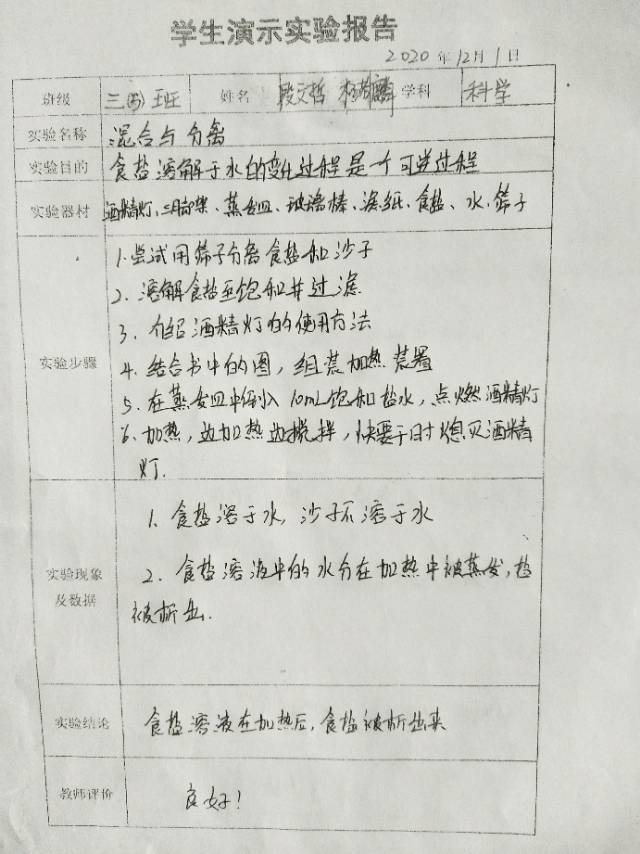 学生演示实验报告
2020年12月1日
班级 三(5)班 姓名 段文哲 鹏 学科 科学
实验名称 混合与分离
实验目的 食盐溶解于水的变化过程是一个可逆过程
实验器材 酒精灯、三脚架、蒸发皿、玻璃棒、滤纸、食盐、水、筛子
实验步骤
1.尝试用筛子分离食盐和沙子
2.溶解食盐至饱和并过滤
3.介绍酒精灯的使用方法
4.结合书中的图,组装加热装置
5.在蒸发皿中倒入10mL饱和盐水,点燃酒精灯
6.加热,边加热边搅拌,快要干时熄灭酒精
灯.
实验现象及数据
1.食盐溶于水,沙子不溶于水
2.食盐溶液中的水分在加热中被蒸发,盐
被析出.
实验结论 食盐溶液在加热后,食盐被析出来
教师评价 良好!